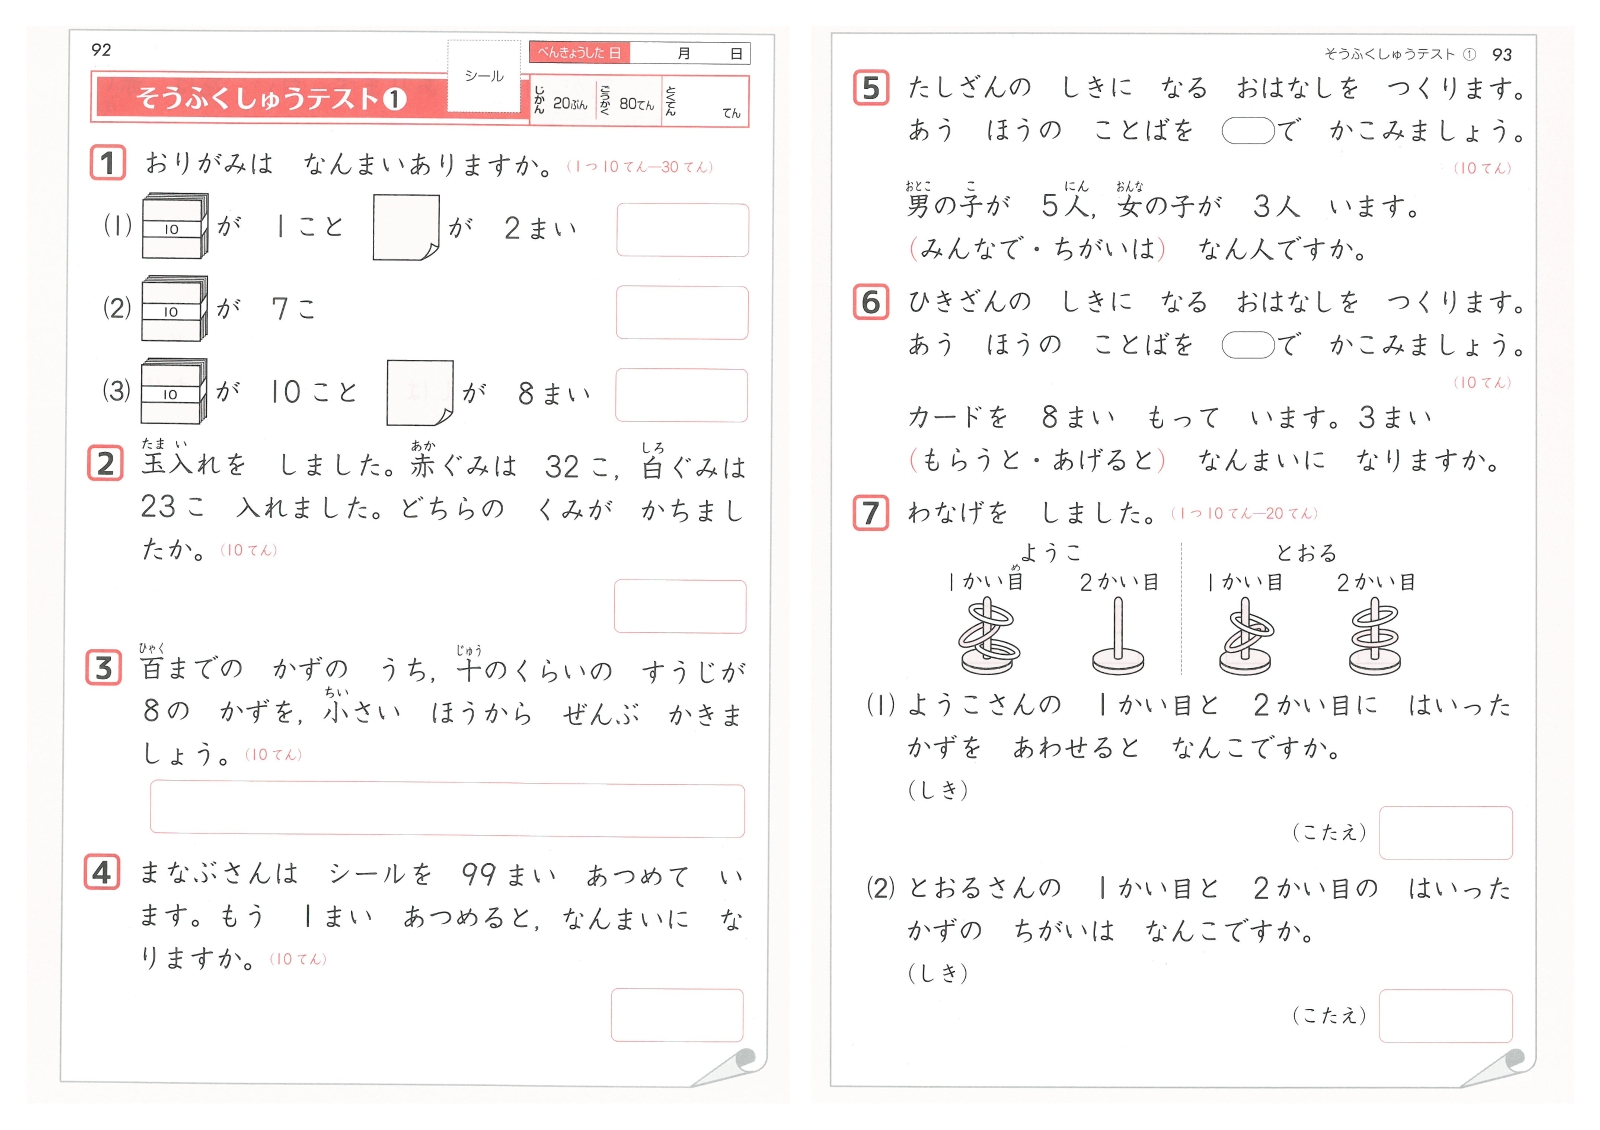 92
べんきょうした日 月 日
シール
そうふくしゅうテスト❶
じかん 20ぷん ごうかく 80てん とくてん てん
1 おりがみは なんまいありますか。(1つ10てん―30てん)
(1) 10 が 1こと が 2まい
(2) 10 が 7こ
(3) 10 が 10こと が 8まい
たま い あか しろ
2 玉入れを しました。赤ぐみは 32こ, 白ぐみは
23こ 入れました。どちらの くみが かちまし
たか。(10てん)
ひゃく じゅう
3 百までの かずの うち, 十のくらいの すうじが
ちい
8の かずを, 小さい ほうから ぜんぶ かきま
しょう。(10てん)
4 まなぶさんは シールを 99まい あつめて い
ます。もう 1まい あつめると, なんまいに な
りますか。(10てん)
そうふくしゅうテスト① 93
5 たしざんの しきに なる おはなしを つくります。
あう ほうの ことばを で かこみましょう。
(10てん)
おとこ こ にん おんな
男の子が 5人, 女の子が 3人 います。
(みんなで・ちがいは) なん人ですか。
6 ひきざんの しきに なる おはなしを つくります。
あう ほうの ことばを で かこみましょう。
(10てん)
カードを 8まい もって います。3まい
(もらうと・あげると) なんまいに なりますか。
7 わなげを しました。(1つ10てん―20てん)
ようこ とおる
め
1かい目 2かい目 1かい目 2かい目
(1) ようこさんの 1かい目と 2かい目に はいった
かずを あわせると なんこですか。
(しき)
(こたえ)
(2) とおるさんの 1かい目と 2かい目の はいった
かずの ちがいは なんこですか。
(しき)
(こたえ)